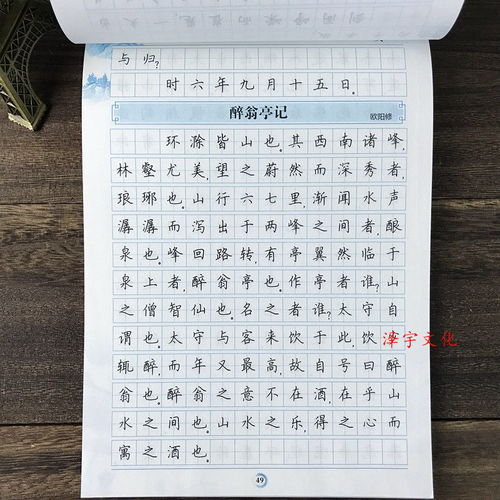 与归?
时六年九月十五日。
醉翁亭记
欧阳修
环滁皆山也。其西南诸峰,
林壑尤美,望之蔚然而深秀者,
琅琊也。山行六七里,渐闻水声
潺潺而泻出于两峰之间者,酿
泉也。峰回路转,有亭翼然临于
泉上者,醉翁亭也。作亭者谁?山
之僧智仙也。名之者谁?太守自
谓也。太守与客来饮于此,饮少
辄醉,而年又最高,故自号曰醉
翁也。醉翁之意不在酒,在乎山
水之间也。山水之乐,得之心而
寓之酒也。
49
泽宇文化